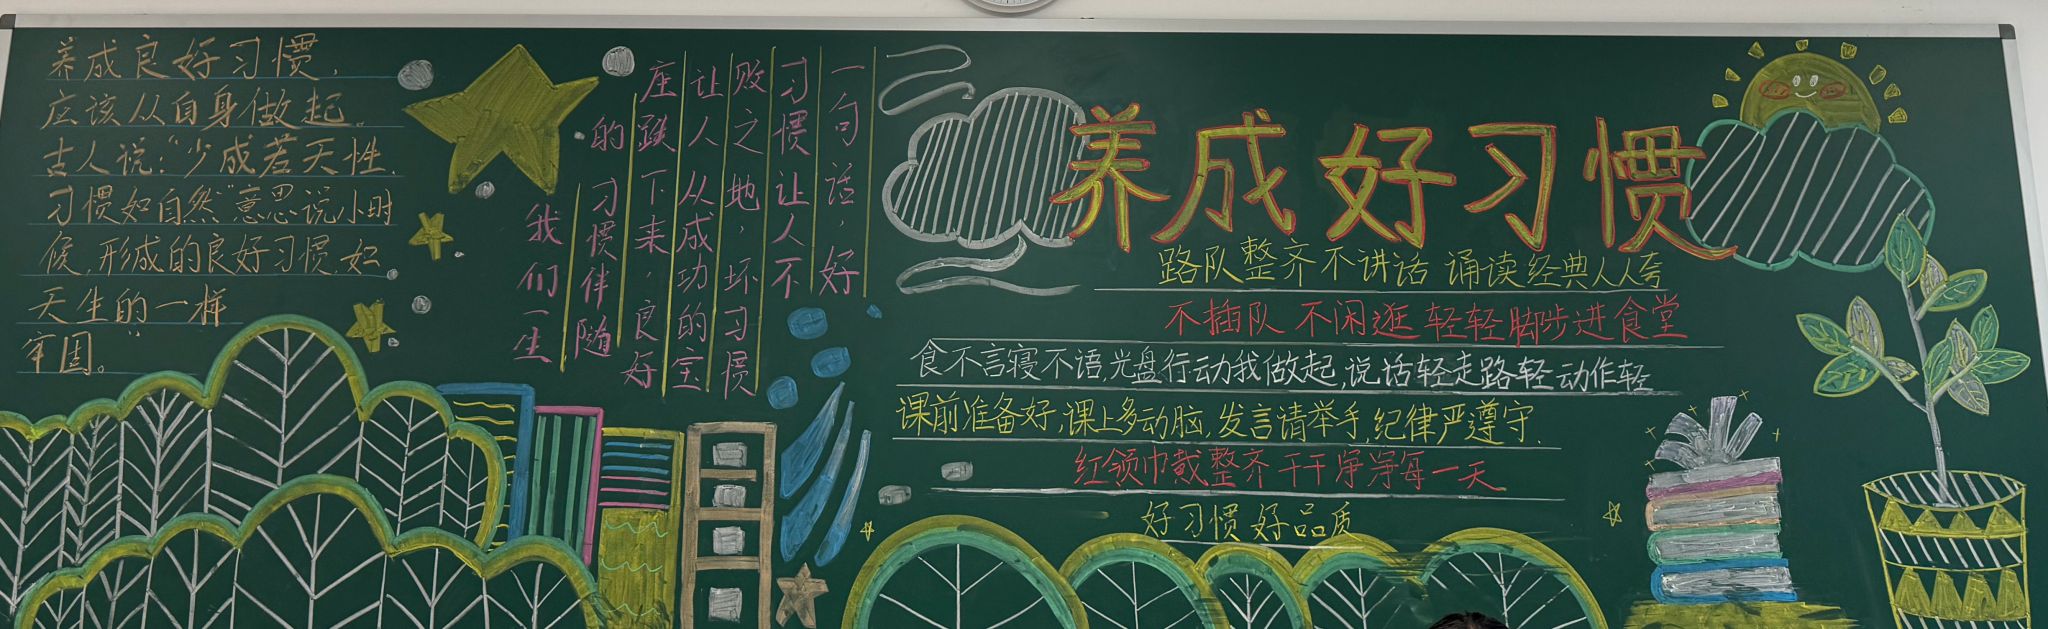 养成良好习惯，
应该从自身做起。
古人说：“少成若天性，
习惯如自然”意思说小时
候，形成的良好习惯，如
天生的一样
牢固。”
一句话，好
习惯让人不
败之地，坏习惯
让人从成功的宝
座跌下来，良好
的习惯伴随
我们一生
养成好习惯
路队整齐不讲话 诵读经典人人夸
不插队 不闲逛 轻轻脚步进食堂
食不言寝不语，光盘行动我做起，说话轻走路轻动作轻
课前准备好，课上多动脑，发言请举手，纪律严遵守.
红领巾戴整齐干干净净每一天
好习惯 好品质